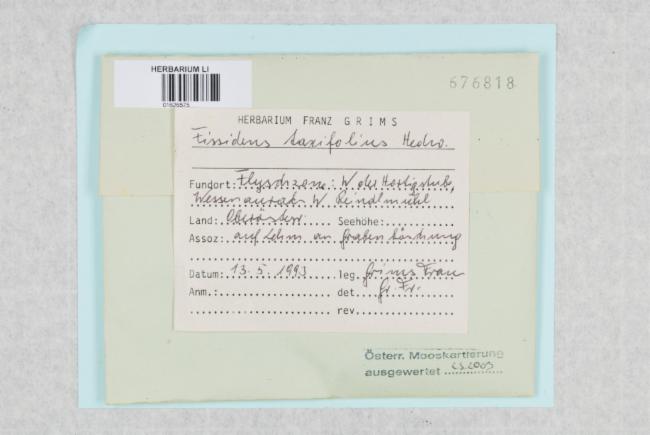 HERBARIUM LI
01626575
676818
HERBARIUM FRANZ GRIMS
Fissidens taxifolius Hedw.
Fundort: Flyschzone: W der
W Reindlmühl
Land: Oberösterr. Seehöhe:
Assoz: auf Lehm an Grabenböschung
Datum: 13.5.1993 leg. Grims Franz
Anm.: det. Gr. Fr.
rev.
Österr. Mooskartierung
ausgewertet 2003